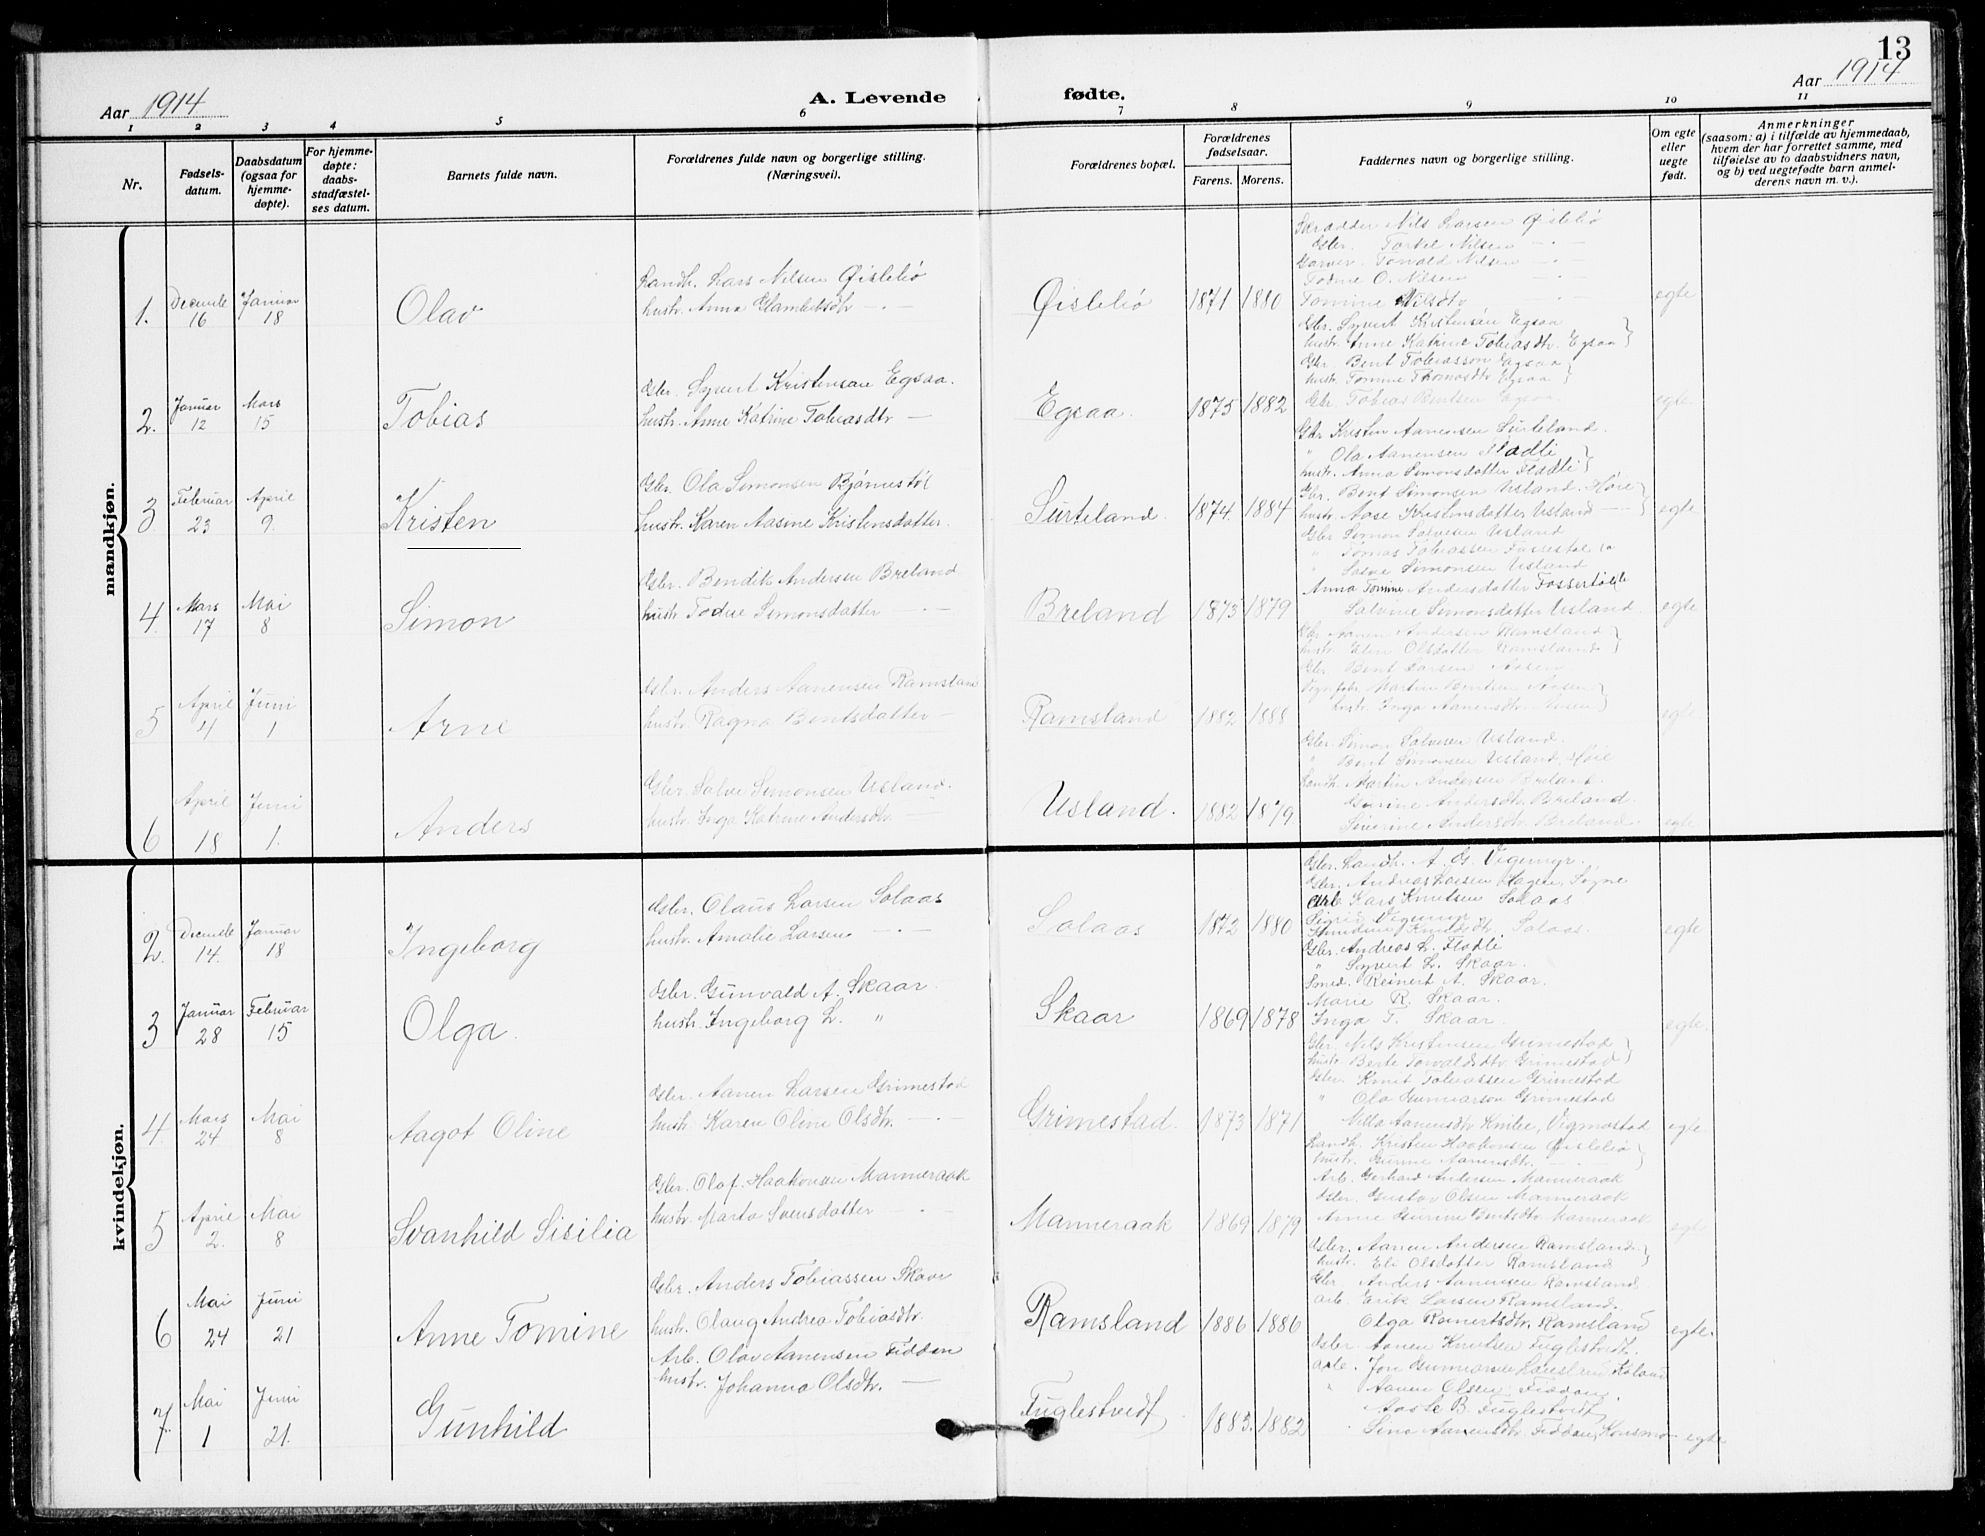 13
Aar 1914
A. Levende fødte.
Aar 1914
1 2 3 4 5 6 7 8 9 10 11
Nr.
Fødsels-datum.
Daabsdatum (ogsaa for hjemme-døpte).
For hjemme-døpte: daabs-stadfæstel-ses datum.
Barnets fulde navn.
Forældrenes fulde navn og borgerlige stilling. (Næringsvei).
Forældrenes bopæl.
Forældrenes fødselsaar.
Farens. Morens.
Faddernes navn og borgerlige stilling.
Om egte eller uegte født.
Anmerkninger (saasom: a) i tilfælde av hjemmedaab, hvem der har forrettet samme, med tilføielse av to daabsvidners navn, og b) ved uegtefødte barn anmel-derens navn m. v.).
mandkjøn.
1. Decembe 16 Januar 18 Olav
Landh. Lars Nilsen Øislebø
hustr. Anna
Øislebø 1871 1880 egte
Skrædder Nils Larsen Øislebø
Gbr. Torkel Nilsen
Garver Torvald Nilsen
Todne O. Nilsen
Tomine Nilsdtr
2. Januar 12 Mars 15 Tobias
Gbr. Syvert Kristensen Egsaa.
hustr. Anne Katrine Tobiasdtr
Egsaa. 1875 1882 egte
Gbr. Syvert Kristensen Egsaa
hustr. Anne Katrine Tobiasdtr. Egsaa
Gbr. Bent Tobiasson Egsaa
hustr. Tomine Thomasdtr Egsaa
Gbr. Tobias Bentsen Egsaa
3 Februar 23 April 9. Kristen
Gbr. Ola Simonsen Bjørnestøl
hustr. Karen Aasine Kristensdatter.
Surteland. 1874. 1884 egte
Gbr Kristen Aanensen Surteland.
" Ola Aanensen Fladli
hustr. Anna Simonsdatter Fladli
Gbr. Bent Simonsen Usland. Høie
hustr. Aase Kristensdatter Usland
4. Mars 17 Mai 8 Simon
Gbr. Bendik Andersen Breland
hustr. Todne Simonsdatter
Breland 1873 1879 egte
Gbr Simon Salvesen Usland
" Tomas Tobiassen
" Salve Simonsen Usland
Anna Tomine Andersdatter
Salvine Simonsdatter Usland.
5 April 4 Juni 1 Arne
Gbr. Anders Aanensen Ramsland
hustr. Ragna Bentsdatter
Ramsland 1882 1888 egte
Gbr Aanen Andersen Ramsland
hustr. Eli Olsdatter Ramsland.
Gbr. Bent Larsen Aasen
Martin Bentsen Aasen
hustr. Inga Aanensdtr. Aasen
6 April 18 Juni 1. Anders
Gbr. Salve Simonsen Usland.
hustr. Inga Katrine Andersdtr.
Usland. 1882 1879 egte
Gbr. Simon Salvesen Usland.
" Bent Simonsen Usland, Høie
Landh. Martin Andersen Breland.
Gurine Andersdtr. Breland.
Siverine Andersdtr Breland.
kvindekjøn.
2. Decembe 14. Januar 18 Ingeborg
Gbr. Olaus Larsen Solaas
hustr. Amalie Larsen
Solaas 1872 1880 egte
Gbr. Landh. A. G. Vigemyr.
Gbr. Andreas Larsen Hagen, Søgne
Arb Lars Knutsen Solaas
Sigrid Vigemyr
Knutsdtr. Solaas.
3 Januar 28 Februar 15 Olga.
Gbr. Gunvald A. Skaar.
hustr. Ingeborg L. "
Skaar 1869 1878 egte.
Gbr. Andreas L. Fladli
" Syvert L. Skaar.
Smed. Reinert A. Skaar.
Marie R. Skaar.
Inga T. Skaar.
4. Mars 24 Mai 8 Aagot Oline
Gbr. Aanen Larsen Grimestad
hustr. Karen Oline Olsdtr.
Grimestad. 1873 1871 egte
Gbr. Nils Kristensen Grimestad
hustr. Berte Torvaldsdtr Grimestad
Gbr. Knut Tobiassen Grimestad
" Ola Gunnarson Grimestad
Aanensdtr Vigmostad
5 April 2. Mai 8 Svanhild Sisilia
Gbr. Olaf Haakonsen Manneraak
hustr. Marta Svensdatter
Manneraak 1869 1879 egte
Landh. Kristen Haakonsen Øislebø
hustr. Gurine Aanensdtr.
Arb. Gerhard Andersen Manneraak
Gbr. Gustav Olsen Manneraak
Anne Gurine Bentsdtr Manneraak
6 Mai 24 Juni 21 Anne Tomine
Gbr. Anders Tobiassen Skaar
hustr. Olaug Andrea Tobiasdtr.
Ramsland 1886 1886 egte.
Gbr. Aanen Andersen Ramsland.
hustr. Eli Olsdatter Ramsland
Gbr. Anders Aanensen Ramsland
arb. Erik Larsen Ramsland.
Olga Reinertsdtr. Ramsland
7. Mai 1 Juni 21. Gunhild
Arb. Olav Aanensen Fidden
hustr. Johanna Olsdtr.
Fuglestvedt 1883. 1882 egte
Gbr. Aanen Knutsen Fuglestvedt.
arb. Jon Gunnarsen
" Aanen Olsen Fidden,
Aaste B. Fuglestvedt
Sina Aanensdtr Fidden, Konsmo